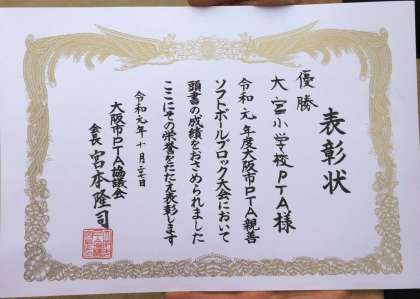 表彰状
優勝
大宮小学校PTA様
令和元年度大阪市PTA親善
ソフトボールブロック大会において
頭書の成績をおさめられました
ここにその栄誉をたたえ表彰します
令和元年十月二十七日
大阪市PTA協議会
会長 宮本隆司